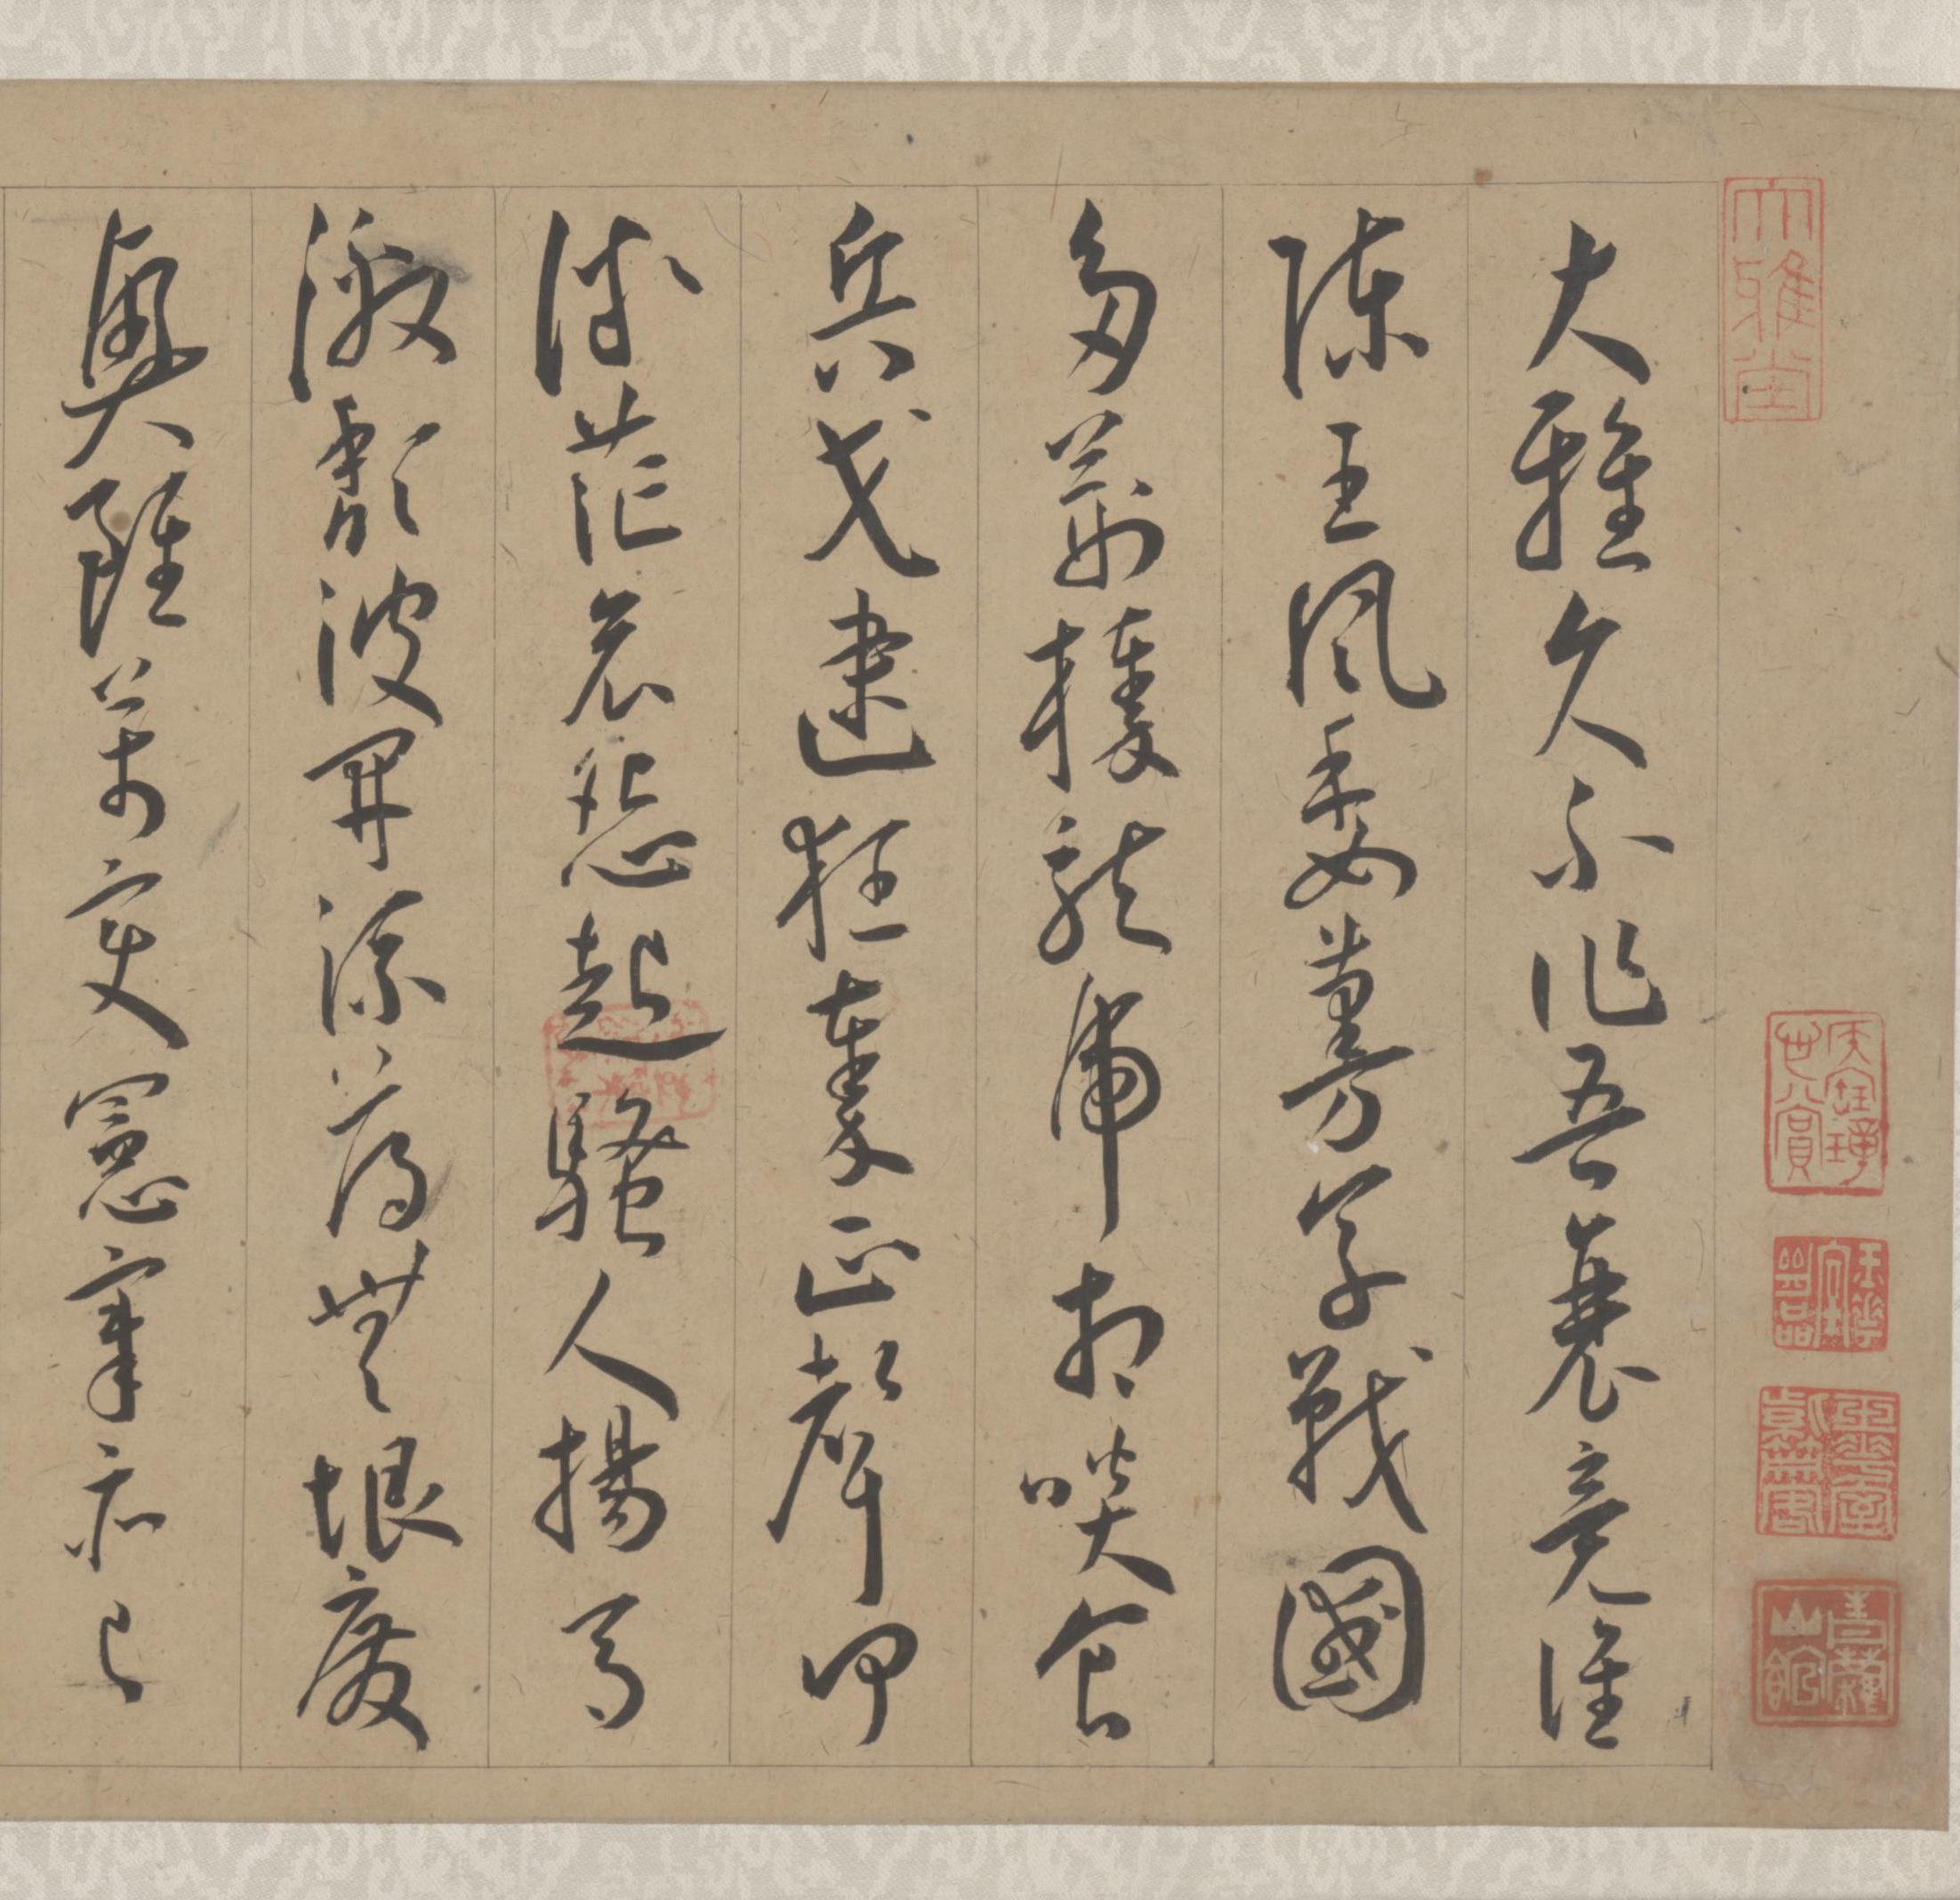 大雅堂
青藜山館
大雅久不作吾衰竟誰
陳王風委蔓草戰國
多荊榛龍虎相啖食
兵戈逮狂秦正聲何
微茫哀怨起騷人揚馬
激頹波開流蕩無垠廢
興雖萬變憲章亦已